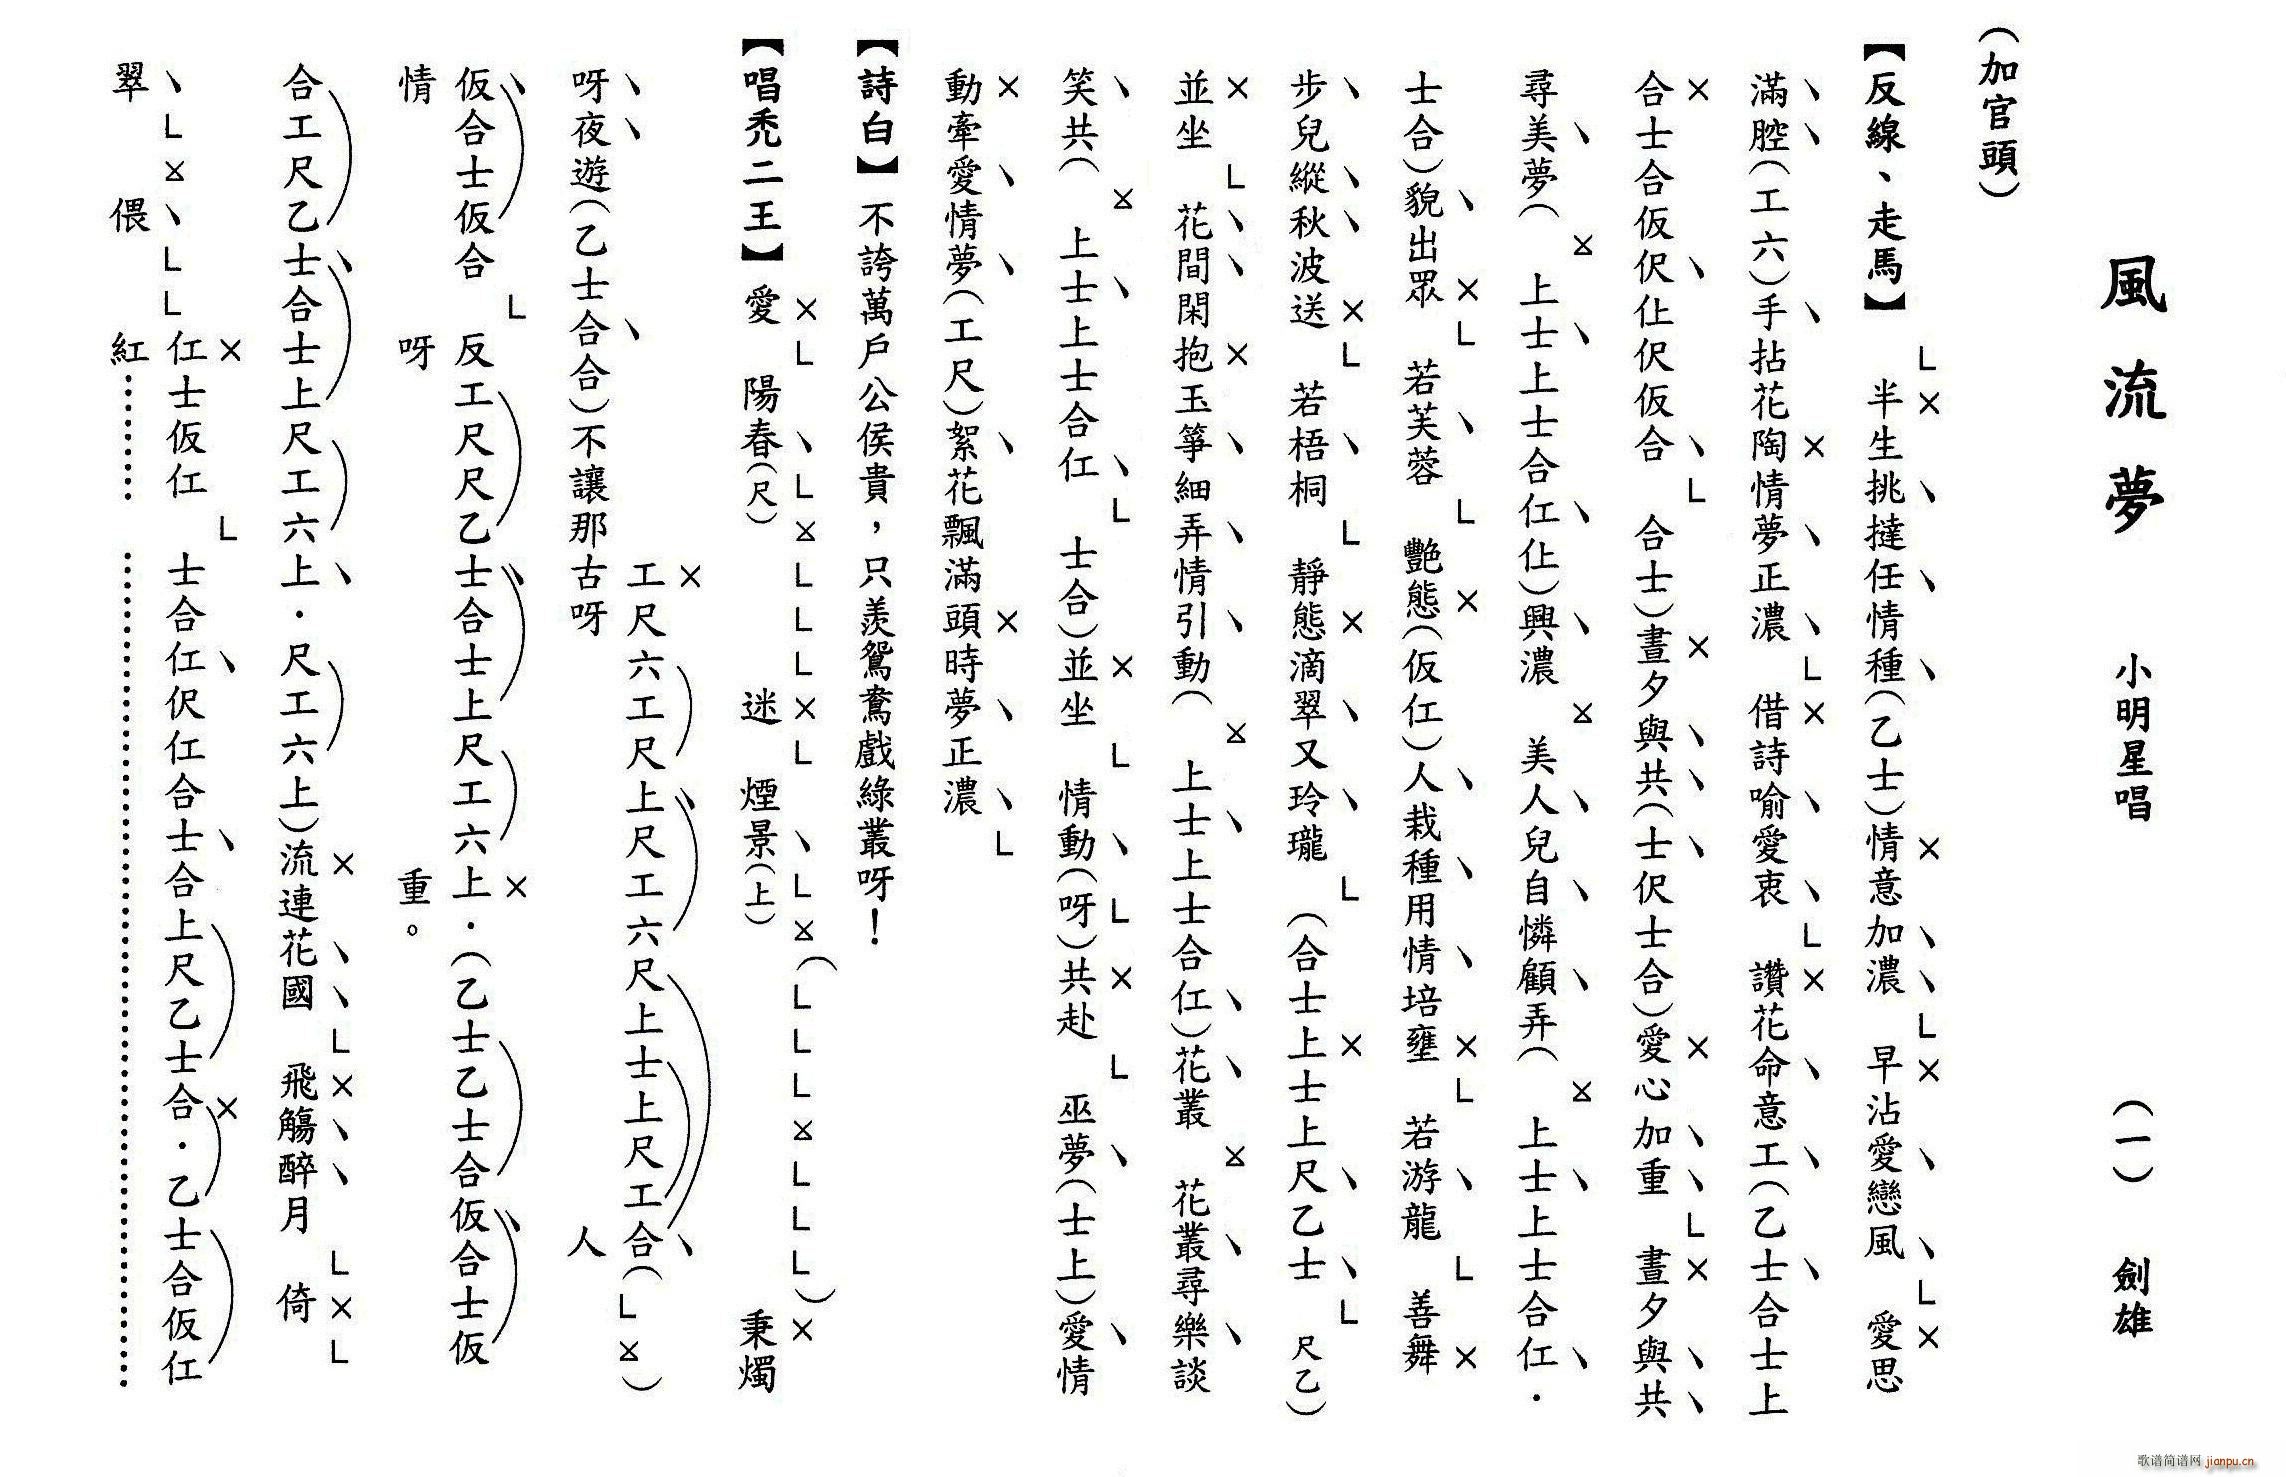 風流夢 小明星唱 （一） 劍雄
（加官頭）
【反線、走馬】半生挑撻任情種（乙士）情意加濃 早沾愛戀風 愛思
滿腔（工六）手拈花陶情夢正濃 借詩喻愛衷 讚花命意工（乙士合士上
合士合仮伬仩伬仮合 合士）晝夕與共（士伬士合）愛心加重 晝夕與共
尋美夢（上士上士合仜仩）興濃 美人兒自憐顧弄（上士上士合仜．
士合）貌出眾 若芙蓉 艷態（仮仜）人栽種用情培壅 若游龍 善舞
步兒縱秋波送 若梧桐 靜態滴翠又玲瓏 （合士上士上尺乙士 尺乙）
並坐 花間閑抱玉箏細弄情引動（上士上士合仜）花叢 花叢尋樂談
笑共（上士上士合仜 士合）並坐 情動（呀）共赴 巫夢（士上）愛情
動牽愛情夢（工尺）絮花飄滿頭時夢正濃
【詩白】不誇萬戶公侯貴，只羨鴛鴦戲綠叢呀！
【唱禿二王】愛 陽春（尺） 迷 煙景（上） 秉燭
呀夜遊（乙士合合）不讓那古呀 人
工尺六工尺上尺工六尺上士上尺工合（ ）
仮合士仮合 反工尺尺乙士合士上尺工六上．（乙士乙士合仮合士仮
情 呀 重。
合工尺乙士合士上尺工六上．尺工六上）流連花國 飛觴醉月 倚
仜士仮仜 士合仜伬仜合士合上尺乙士合．乙士合仮仜
翠 偎 紅……
歌谱简谱网 jianpu.cn